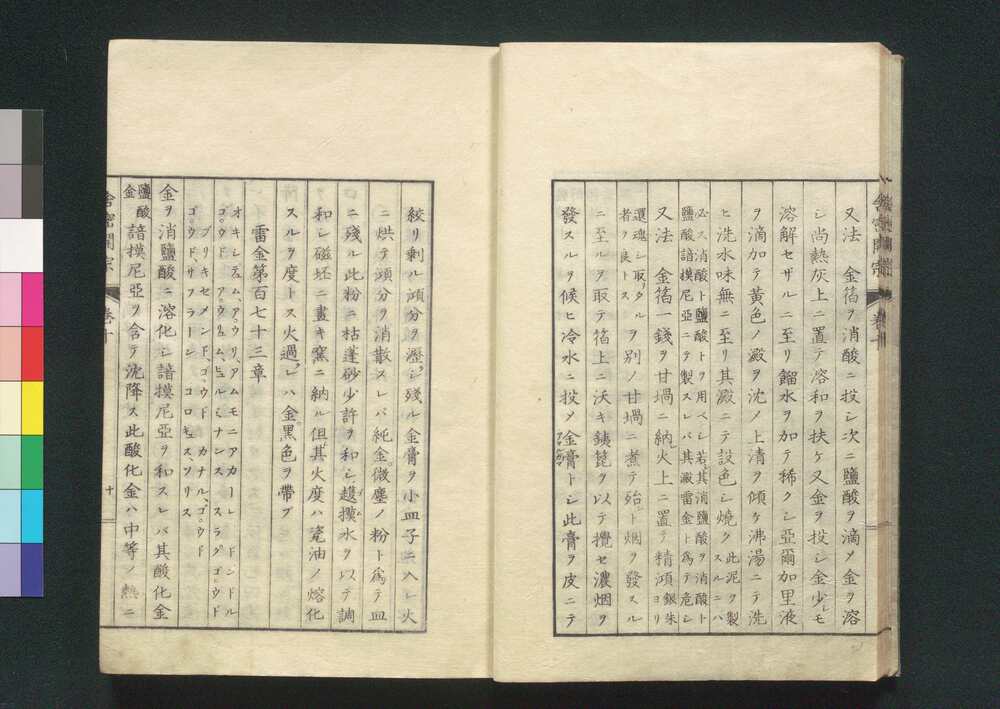 又法 金箔ヲ消酸ニ投シ次ニ鹽酸ヲ滴メ金ヲ溶
シ尚熱灰上ニ置テ溶和ヲ扶ケ又金ヲ投シ金少シモ
溶解セザルニ至リ餾水ヲ加テ稀クシ亞爾加里液
ヲ滴加テ黃色ノ澱ヲ沈メ上清ヲ傾ケ沸湯ニテ洗
ヒ洗水味無ニ至リ其澱ニテ設色シ燒ク 此泥ヲ製スルニハ
必ス消酸ト鹽酸トヲ用ベシ若シ其消鹽酸ヲ消酸ト
鹽酸諳摸尼亞ニテ製スレバ其澱雷金ト爲テ危シ
又法 金箔一錢ヲ甘堝ニ納レ火上ニ置テ精澒 銀朱ヨリ
還魂シ取タル者ヲ良トス ヲ別ノ甘堝ニ煮テ殆ト烟ヲ發スル
ニ至ルヲ取テ箔上ニ沃キ銕箆ヲ以テ攪セ濃烟ヲ
發スルヲ候ヒ冷水ニ投メ金膏トシ此膏ヲ皮ニテ
絞リ剩ル澒分ヲ瀝シ殘ル金膏ヲ小皿子ニ入レ火
ニ烘テ澒分ヲ消散スレバ純金微塵ノ粉ト爲テ皿
ニ殘ル此粉ニ枯蓬砂少許ヲ和シ護摸水ヲ以テ調
和シ磁坯ニ畫キ窯ニ納ル但其火度ハ甆油ノ熔化
スルヲ度トス火過レハ金黑色ヲ帶ブ
雷金第百七十三章
オキシデュム、アウリ、アムモニアカーレ ドンドル
ゴウド アウリュム、ヒュルミナンス スラグゴウド
ブリキセメンド、ゴウド カナル、ゴウド
ゴウド、サフラーン コロキュス、ソリス
金ヲ消鹽酸ニ溶化シ諳摸尼亞ヲ和スレバ其酸化金
鹽酸金 諳摸尼亞ヲ含テ沈降ス此酸化金ハ中等ノ熱ニ
舎密開宗 卷十
十